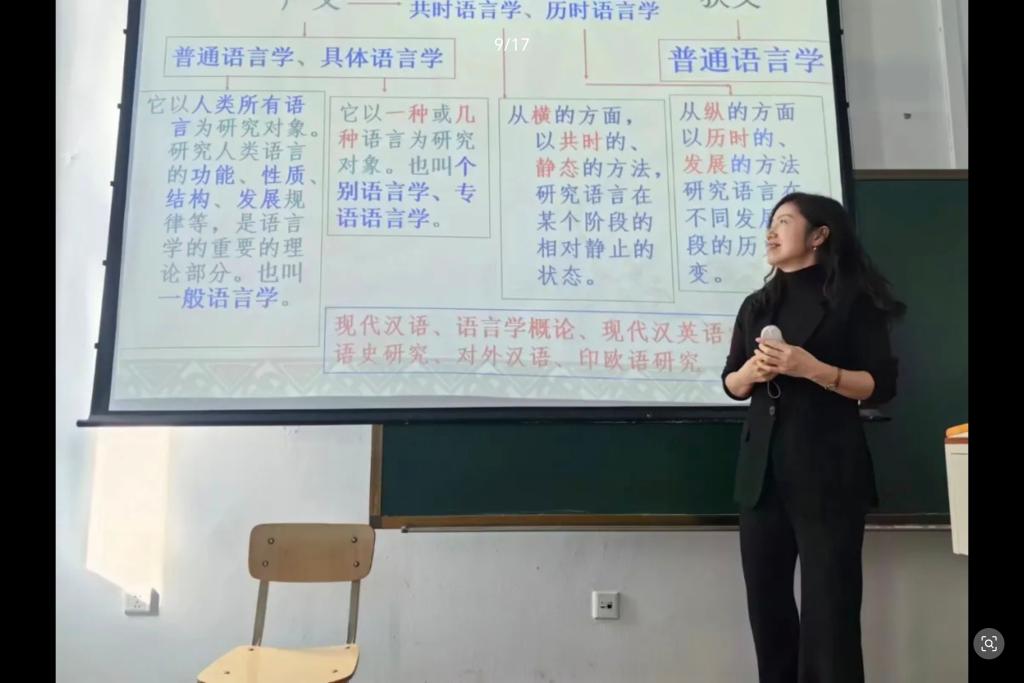 广义
狭义
共时语言学、历时语言学
9/17
普通语言学、具体语言学
普通语言学
它以人类所有语
言为研究对象。
研究人类语言
的功能、性质、
结构、发展规
律等，是语言
学的重要的理
论部分。也叫
一般语言学。
它以一种或几
种语言为研究
对象。也叫个
别语言学、专
语语言学。
从横的方面，
以共时的、
静态的方法，
研究语言在
某个阶段的
相对静止的
状态。
从纵的方面
以历时的、
发展的方法
研究语言在
不同发展
段的历
变。
现代汉语、语言学概论、现代汉英语
语史研究、对外汉语、印欧语研究